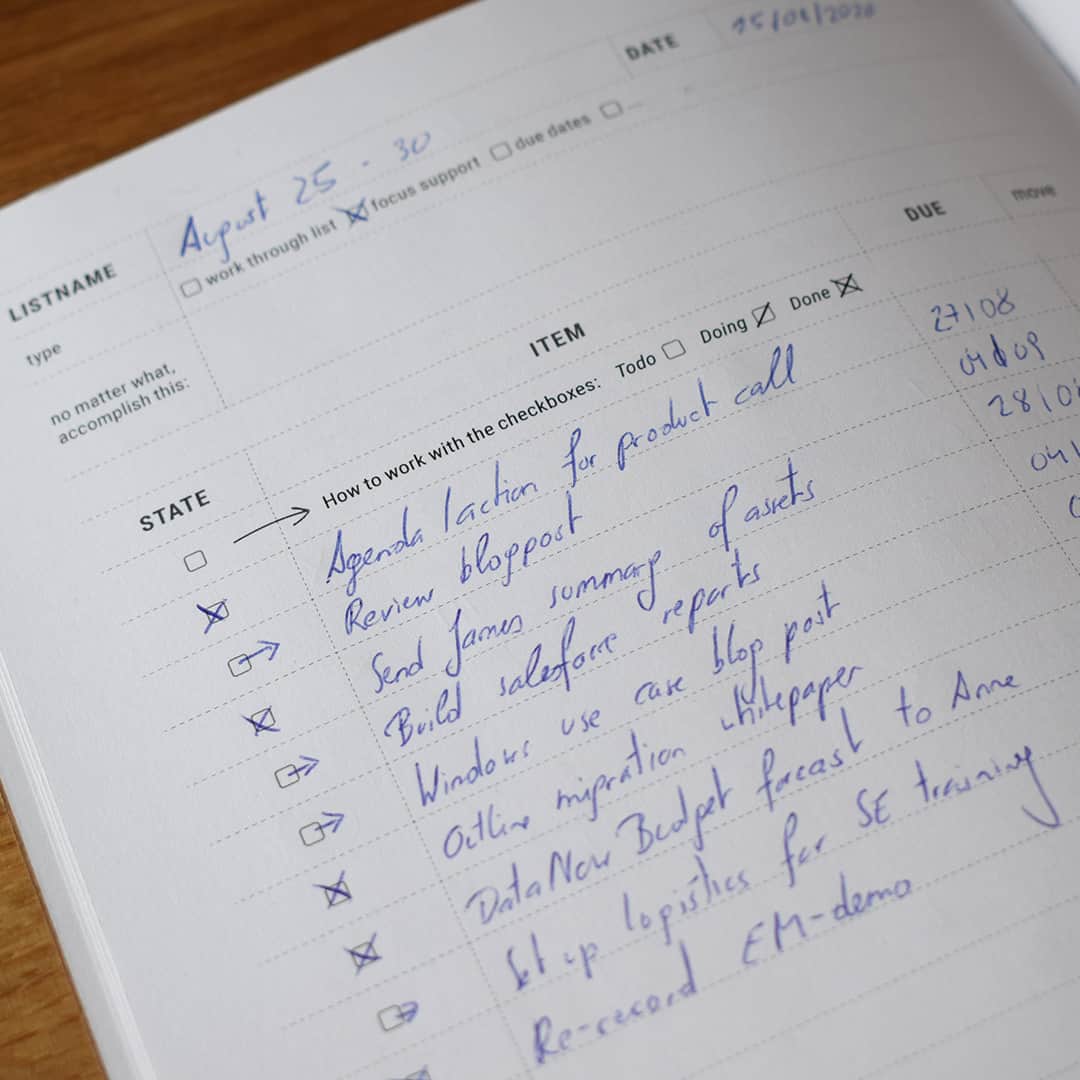 DATE
LISTNAME August 25 - 30
type work through list focus support due dates ...
no matter what,
accomplish this:
STATE ITEM DUE move
How to work with the checkboxes: Todo Doing Done
Agenda / action for product call 27/08
Review blogpost
Send James summary of assets 28/0
Build salesforce reports 04/
Windows use case blog post
Outline migration whitepaper
DataNow Budget forcast to Anne
Set up logistics for SE training
Re-record EM-demo